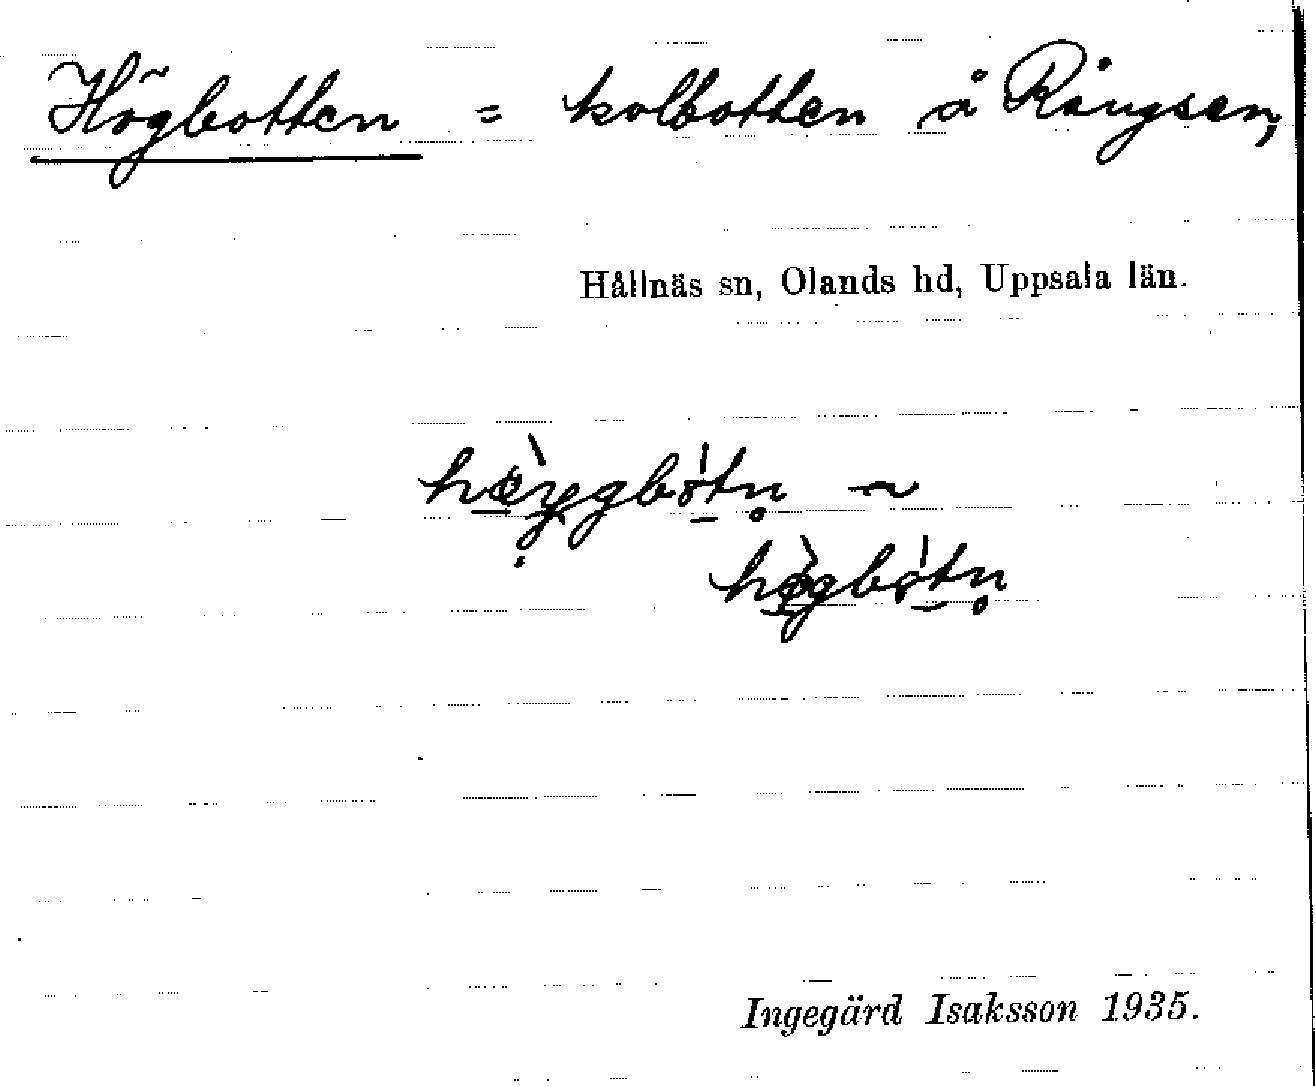 Högbotten = kolbotten å Rångsen,
Hållnäs sn, Olands hd, Uppsala län.
Ingegärd Isaksson 1935.